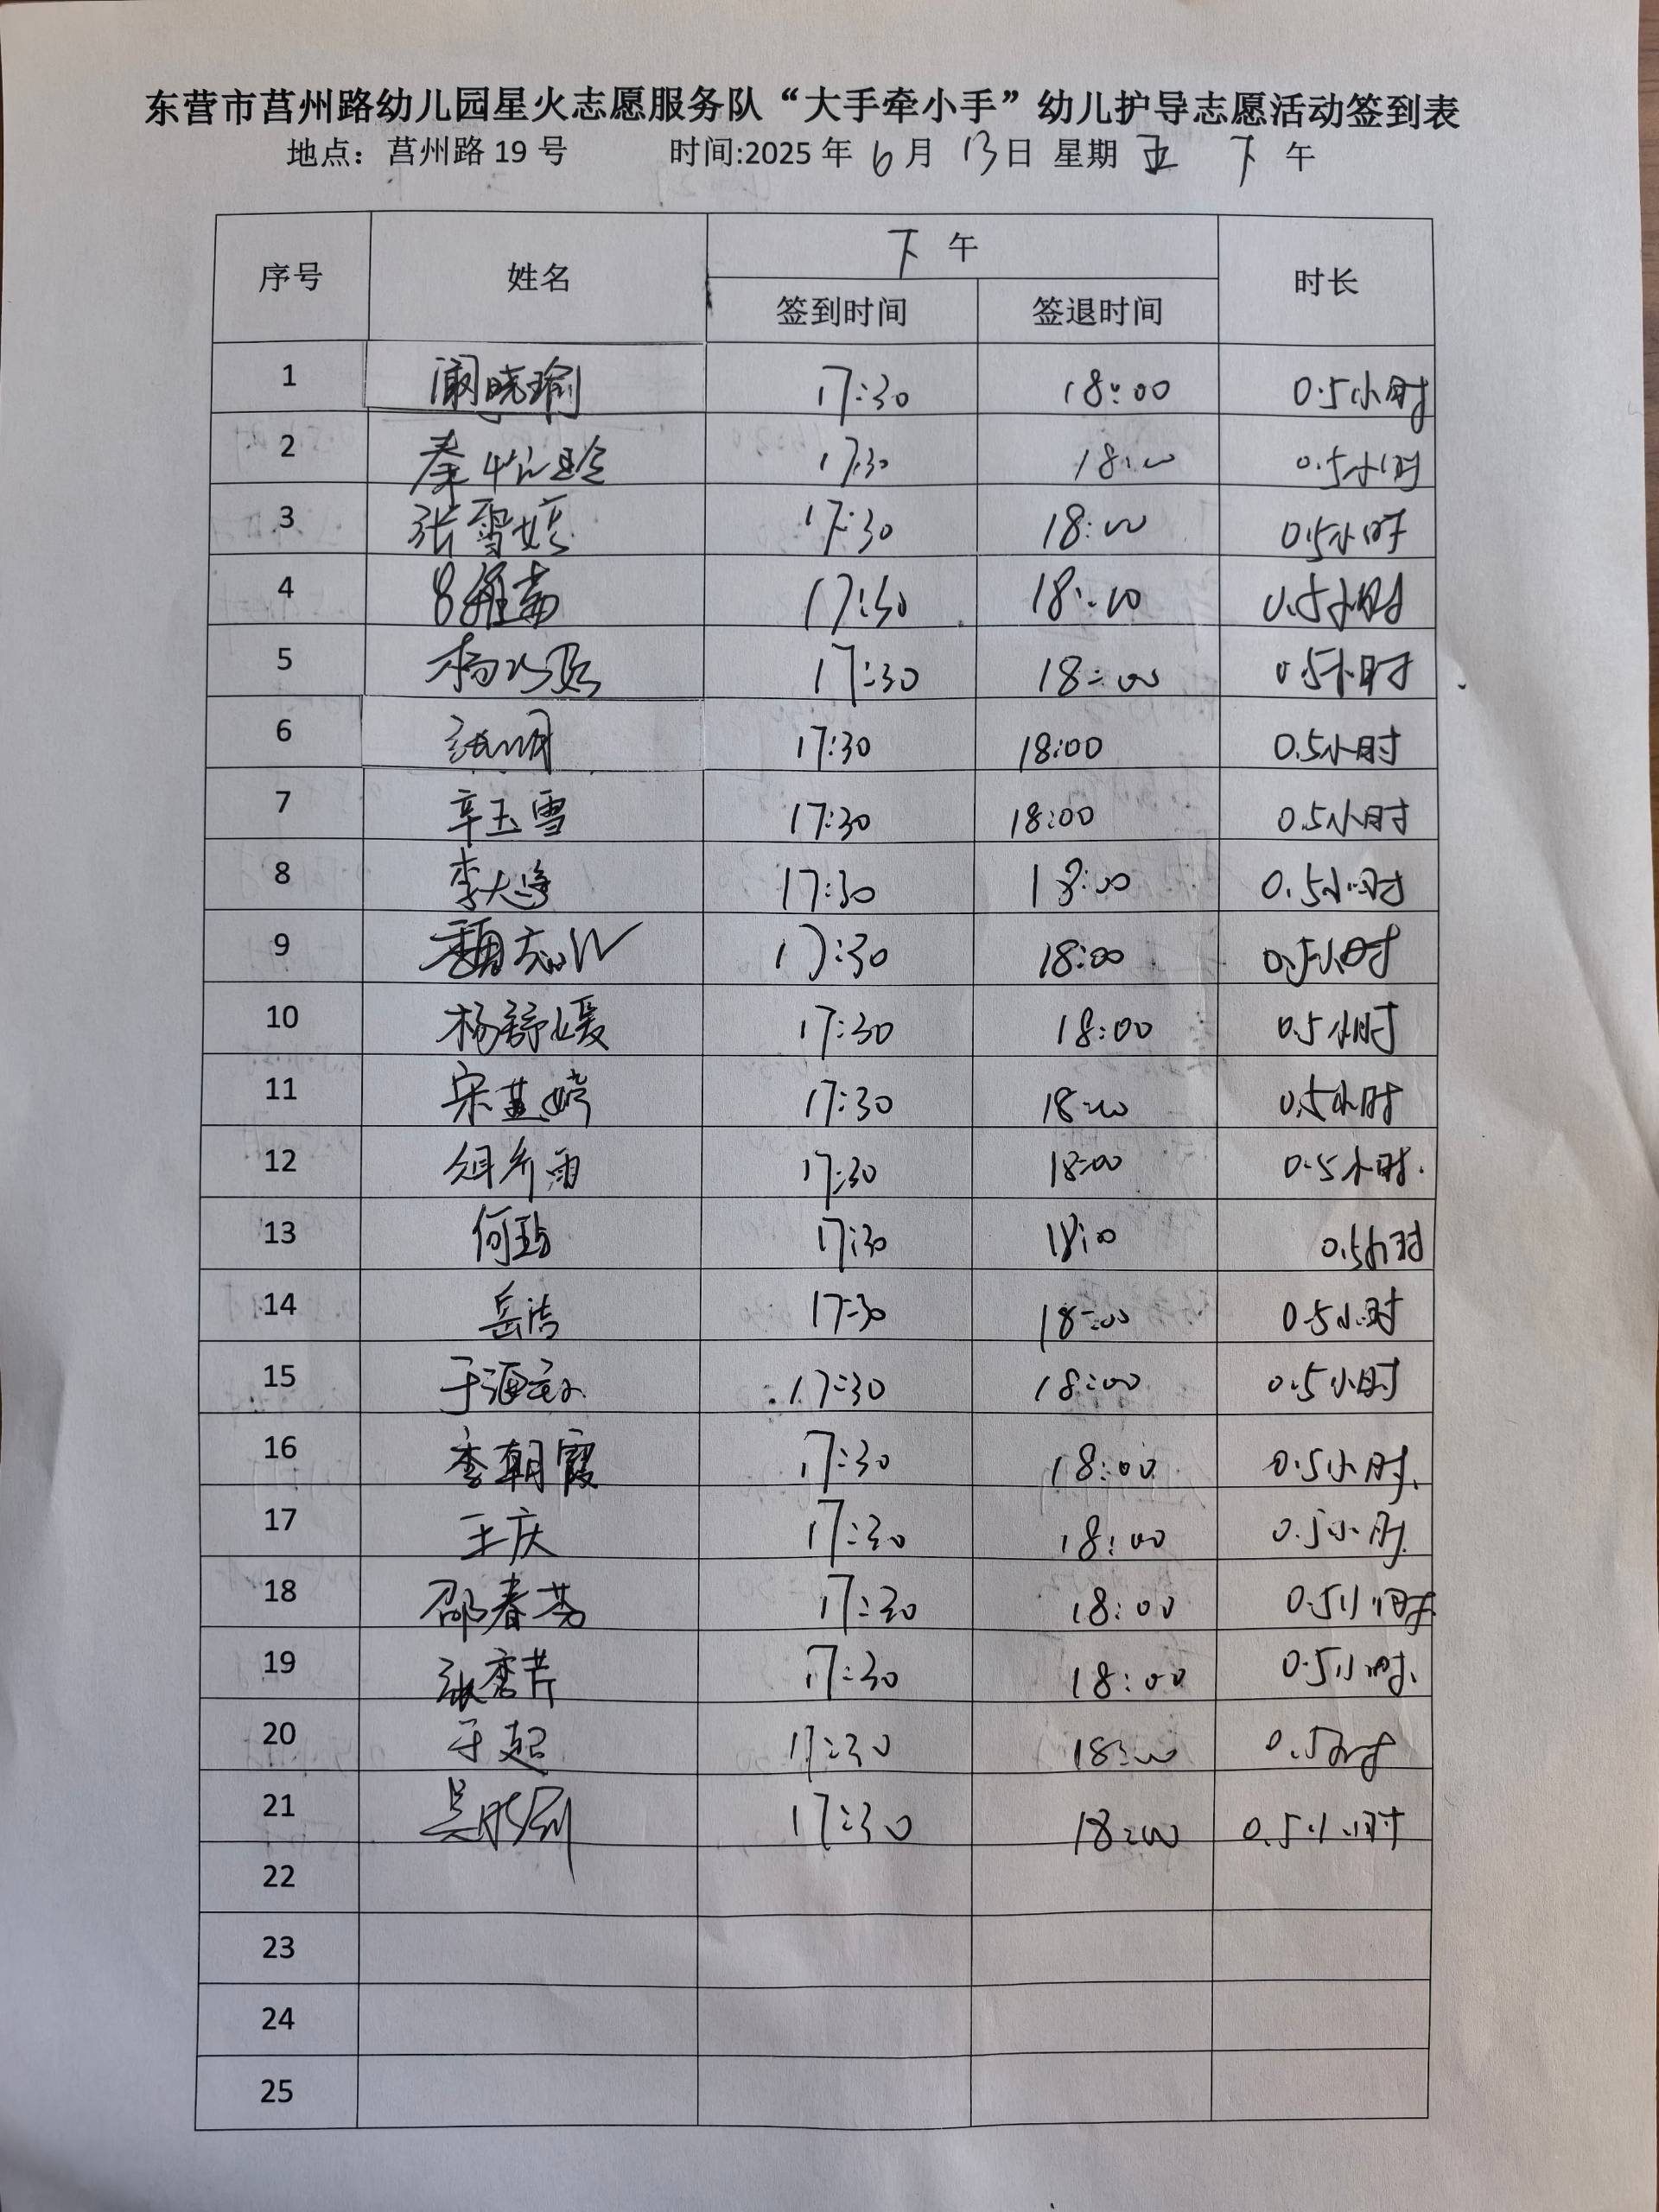 东营市莒州路幼儿园星火志愿服务队“大手牵小手”幼儿护导志愿活动签到表
地点：莒州路 19 号 时间:2025 年 6 月 13 日 星期 五 下 午
序号 姓名 下 午 时长
签到时间 签退时间
1 阚晓瑜 17:30 18:00 0.5小时
2 秦 17:30 18:00 0.5小时
3 张雪婷 17:30 18:00 0.5小时
4 17:30 18:00 0.5小时
5 杨 17:30 18:00 0.5小时
6 17:30 18:00 0.5小时
7 辛玉雪 17:30 18:00 0.5小时
8 李大 17:30 18:00 0.5小时
9 魏 17:30 18:00 0.5小时
10 杨舒媛 17:30 18:00 0.5小时
11 宋 婷 17:30 18:00 0.5小时
12 雨 17:30 18:00 0.5小时.
13 何 17:30 18:00 0.5小时
14 岳洁 17:30 18:00 0.5小时
15 于海 17:30 18:00 0.5小时
16 李朝霞 17:30 18:00 0.5小时.
17 王庆 17:30 18:00 0.5小时.
18 邵春芳 17:30 18:00 0.5小时
19 张秀芹 17:30 18:00 0.5小时.
20 于超 17:30 18:00 0.5小时
21 吴 17:30 18:00 0.5小时
22
23
24
25